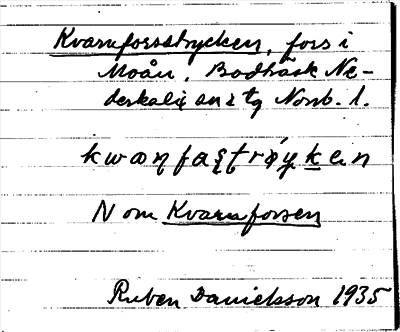 Kvarnforsstrycken, fors i
Moån, Bodträsk Ne-
derkalix sn o tg Norrb. l.
kwaɳfaʂʈrøykein
N om Kvarnforsen
Ruben Danielsson 1935